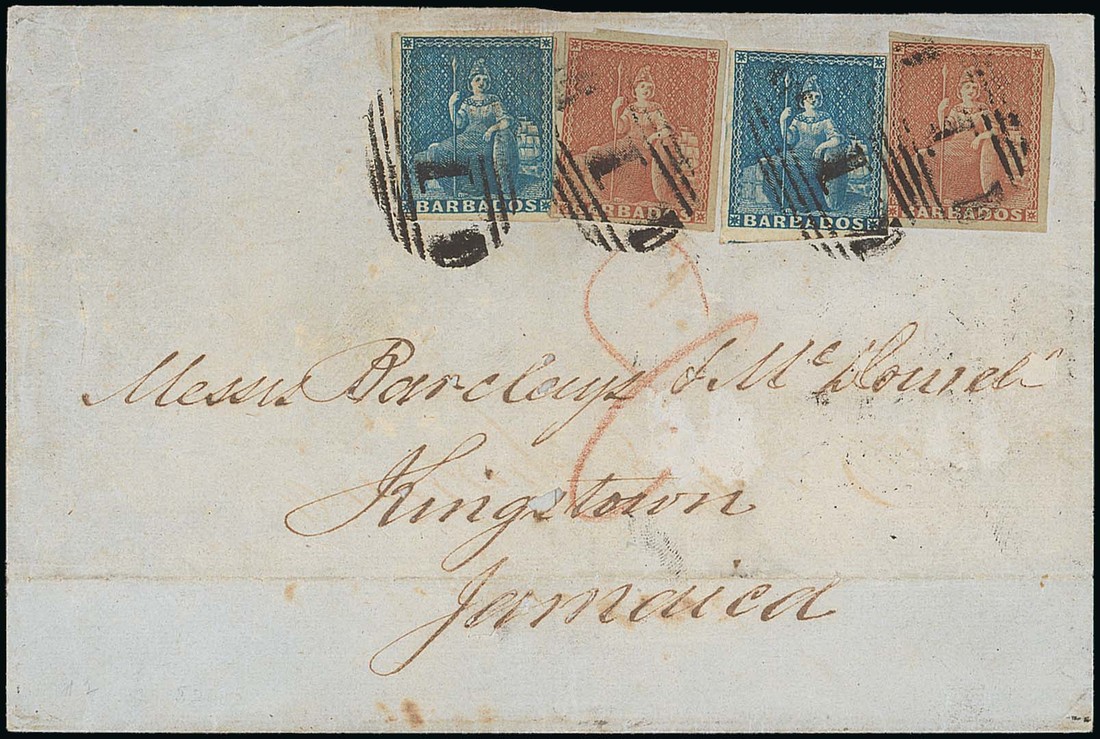 BARBADOS BARBADOS BARBADOS BARBADOS
1 1 1 1
8
Messrs Barclays & McDowel
Kingstown
Jamaica